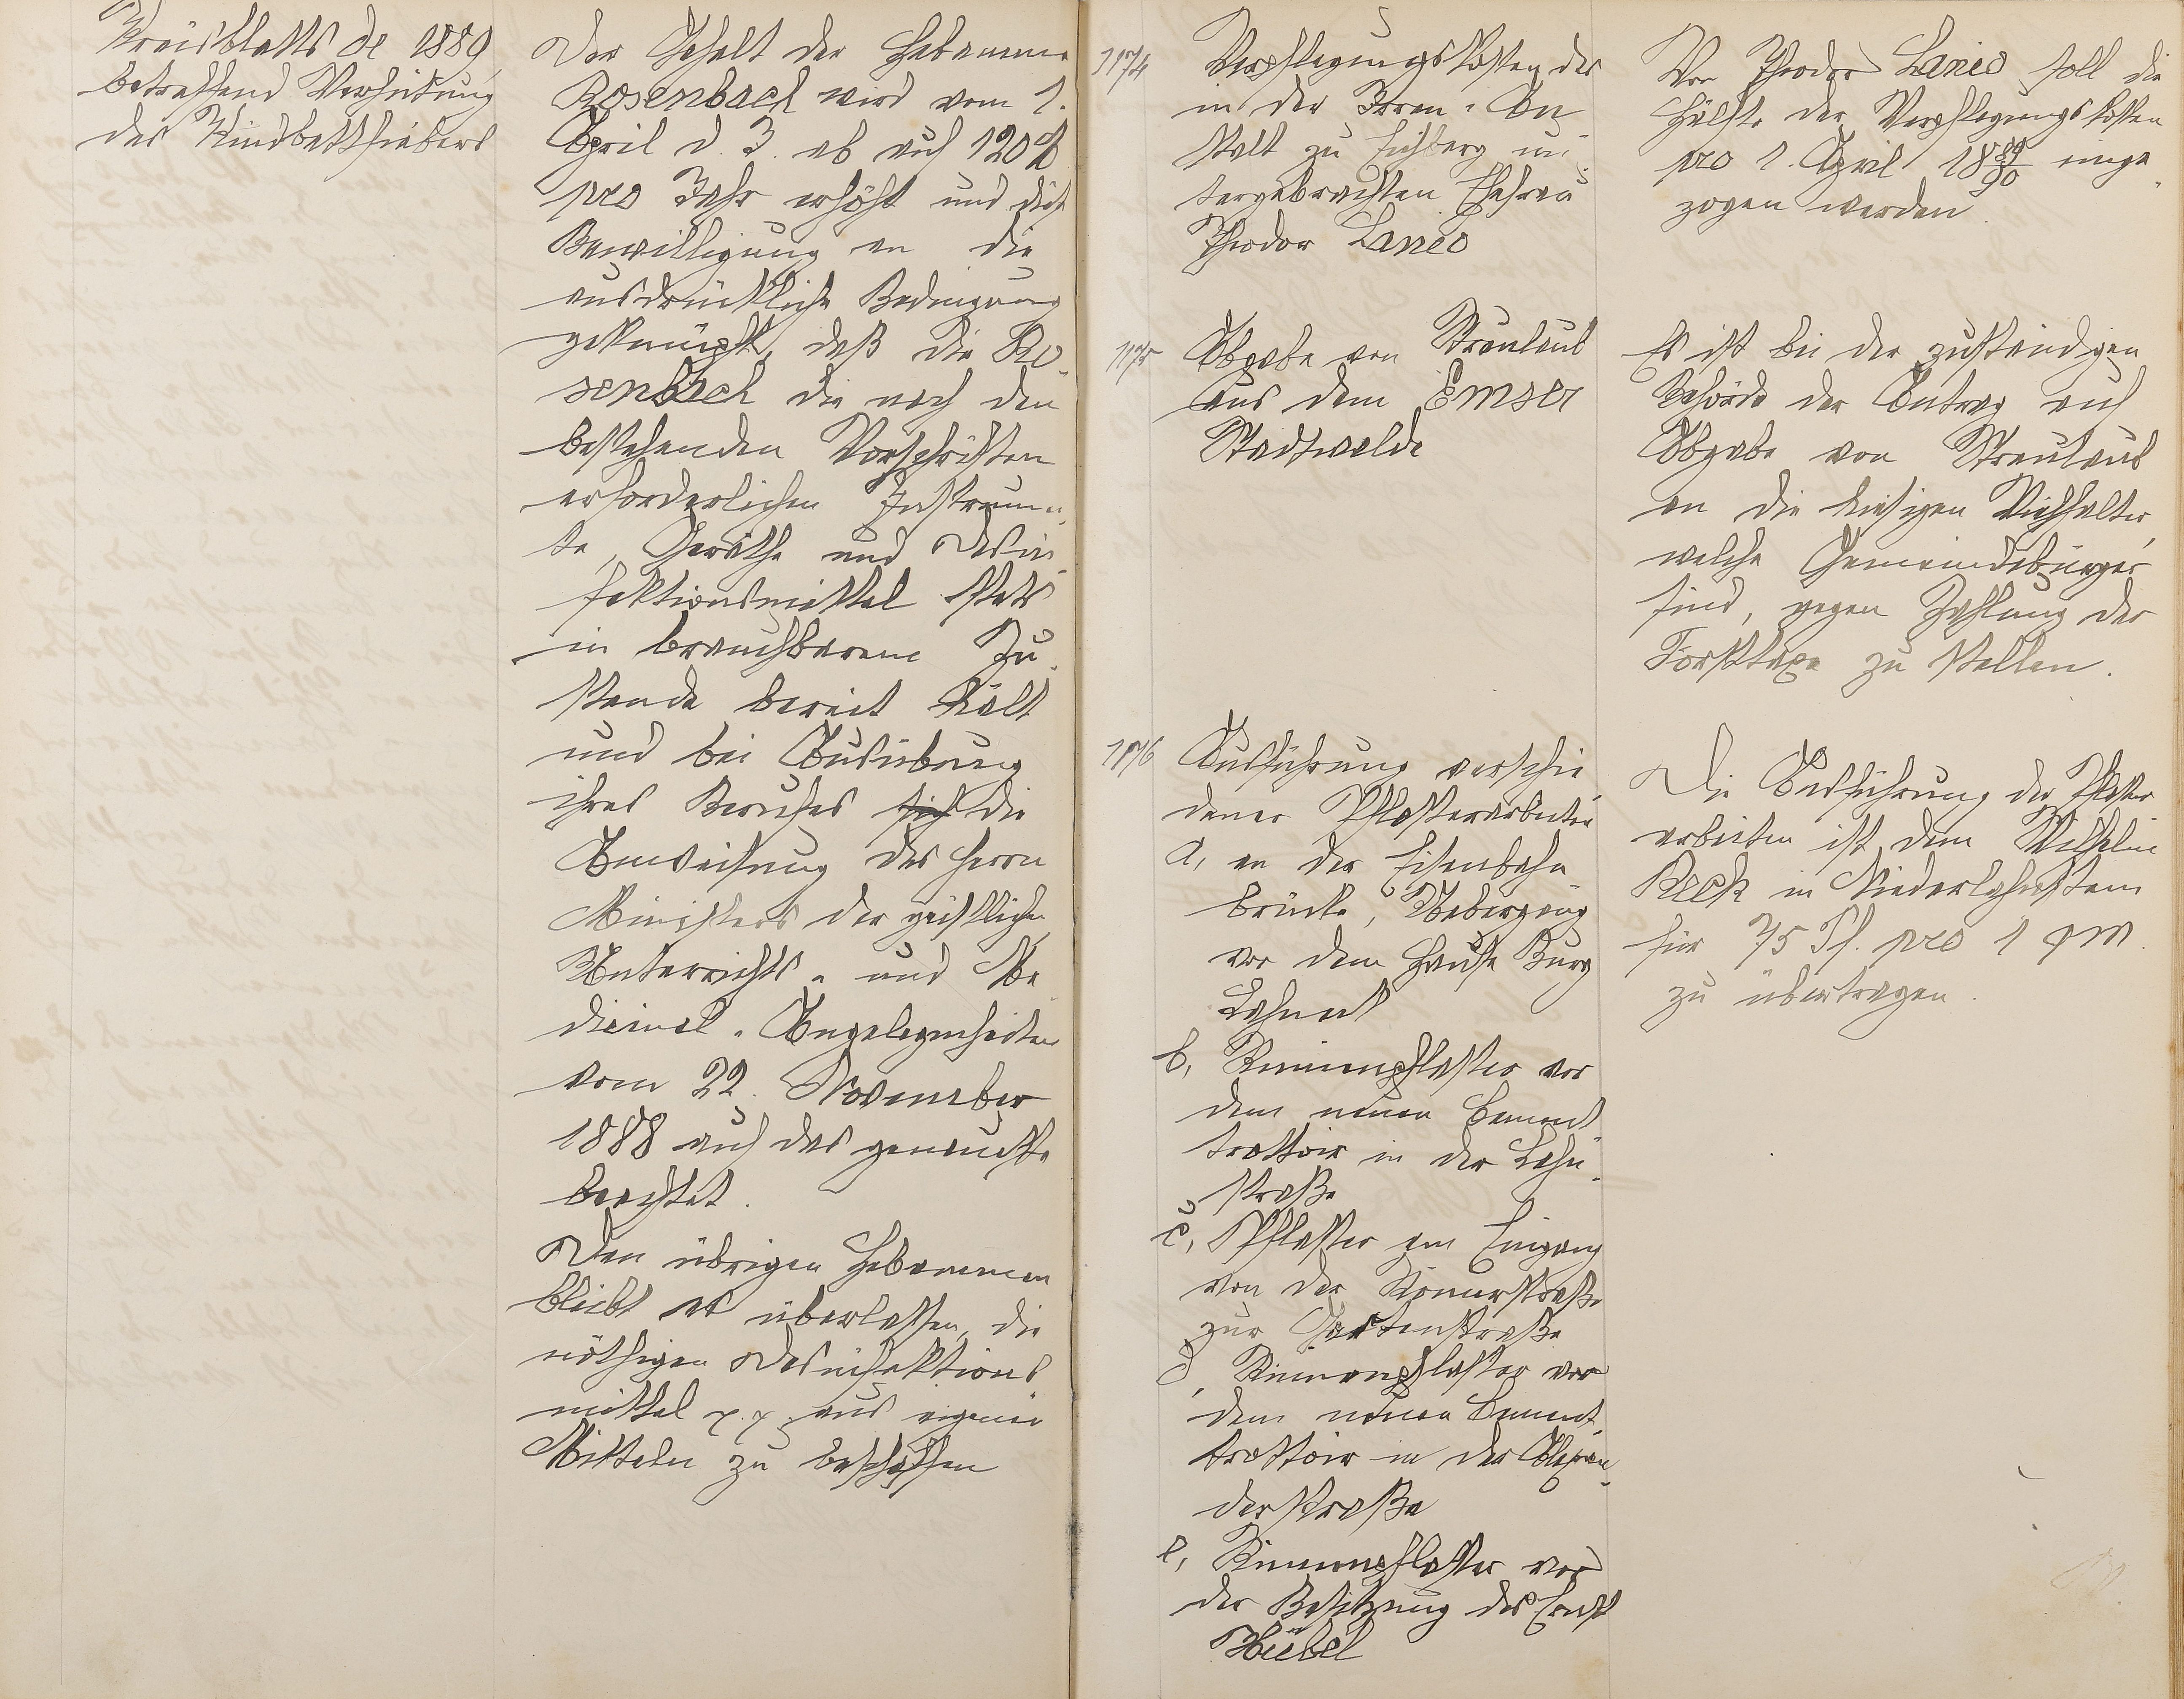 Kreisblatts de 1889
betreffend Verhütung
des Kindbettfiebers
Der Gehalt der Hebamme
Rosenbach wird vom 1.
April d. J. ab auf 120 M
pro Jahr erhöht und die
Bewilligung an die
ausdrückliche Bedingung
geknüpft, daß die Ro-
senbach die nach den
bestehenden Vorschriften
erforderlichen Instrumen-
te, Geräthe und Desin-
fektionsmittel stets
in brauchbarem Zu-
stande bereit hält
und bei Ausübung
ihres Berufes sich die
Anweisung des Herrn
Ministers der geistlichen
Unterrichts- und Me-
dicinal-Angelegenheiten
vom 22. November
1888 auf das genaueste
beachtet.
Den übrigen Hebammen
bleibt es überlassen, die
nöthigen Desinfektions
mittel p.p. aus eigenen
Mitteln zu beschaffen
1174 Verpflegungskosten der
in der Irren-An
stalt zu Eichberg un-
tergebrachten Ehefrau
Theodor Lanio
Von Theodor Lanio soll die
Hälfte der Verpflegungskosten
pro 1. April 1889/90 einge-
zogen werden.
1175 Abgabe von Streulaub
aus dem Emser
Stadtwalde
Es ist bei der zuständigen
Behörde der Antrag auf
Abgabe von Streulaub
an die hiesigen Viehhalter,
welche Gemeindebürger
sind, gegen Zahlung der
Forsttaxe zu stellen.
1176 Ausführung verschie-
dener Pflasterarbeiten
a, an der Eisenbahn
brücke, Uebergang
vor dem Hause Burg
Lahneck
b, Rinnenpflaster vor
dem neuen Cement
trottoir in der Lahn-
straße
c, Pflaster am Eingang
von der Römerstraße
zur Gartenstraße
d, Rinnenpflaster vor
dem neuen Cement-
trottoir in der Alexan-
derstraße
e, Rinnenpflaster vor
der Besitzung des Ernst
Hiebel
Die Ausführung der Pflaster
arbeiten ist dem Wilhelm
Reck in Niederlahnstein
für 75 Pf. pro 1 qm.
zu übertragen.